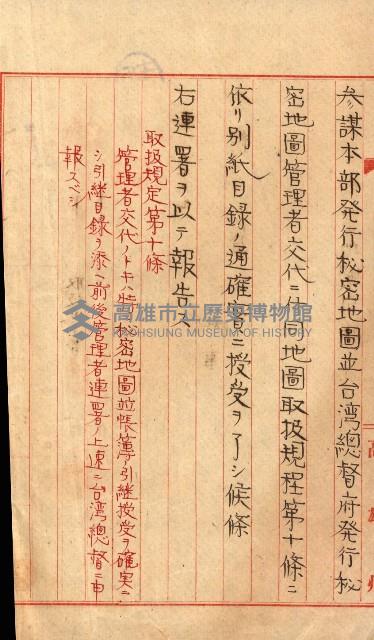 参謀本部発行秘密地図並台湾總督府発行秘
密地圖管理者交代ニ付同地圖取扱規程第十條ニ
依リ別紙目録ノ通確實ニ授受ヲ了シ候條
右連署ヲ以テ報告ス
取扱規定第十條
管理者交代ノトキハ特ニ秘密地圖並帳簿ノ引継授受ヲ確実ニ
シ引継目録ヲ添ヘ前後管理者連署ノ上速ニ台湾總督ニ申
報スベシ
高雄州
高雄市立歷史博物館
KAOHSIUNG MUSEUM OF HISTORY